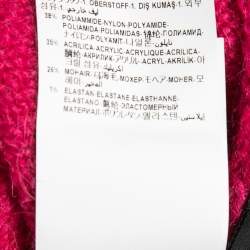 1 · OBERSTOFF 1 · DIŞ KUMAŞ 1 · 외부
38% POLIAMMIDE·NYLON·POLYAMIDE·
POLIAMIDA·POLIAMIDAS·锦纶·ПОЛИАМИД·
ナイロン·POLYAMIT·나일론·نايلون
35% ACRILICA·ACRYLIC·ACRYLIQUE·ACRILICA·
腈纶·АКРИЛИК·アクリル·ACRYL·AKRİLİK·아
크릴 섬유·اكريليك
26% MOHAIR·马海毛·МОХЕР·モヘア·MOHER·모
헤어·الموهير
1% ELASTAN·ELASTANE·ELASTHANNE·
ELASTANO·氨纶·ЭЛАСТОМЕРНЫЙ
МАТЕРИАЛ·ポリウレタン·엘라스탄·إيلاستين